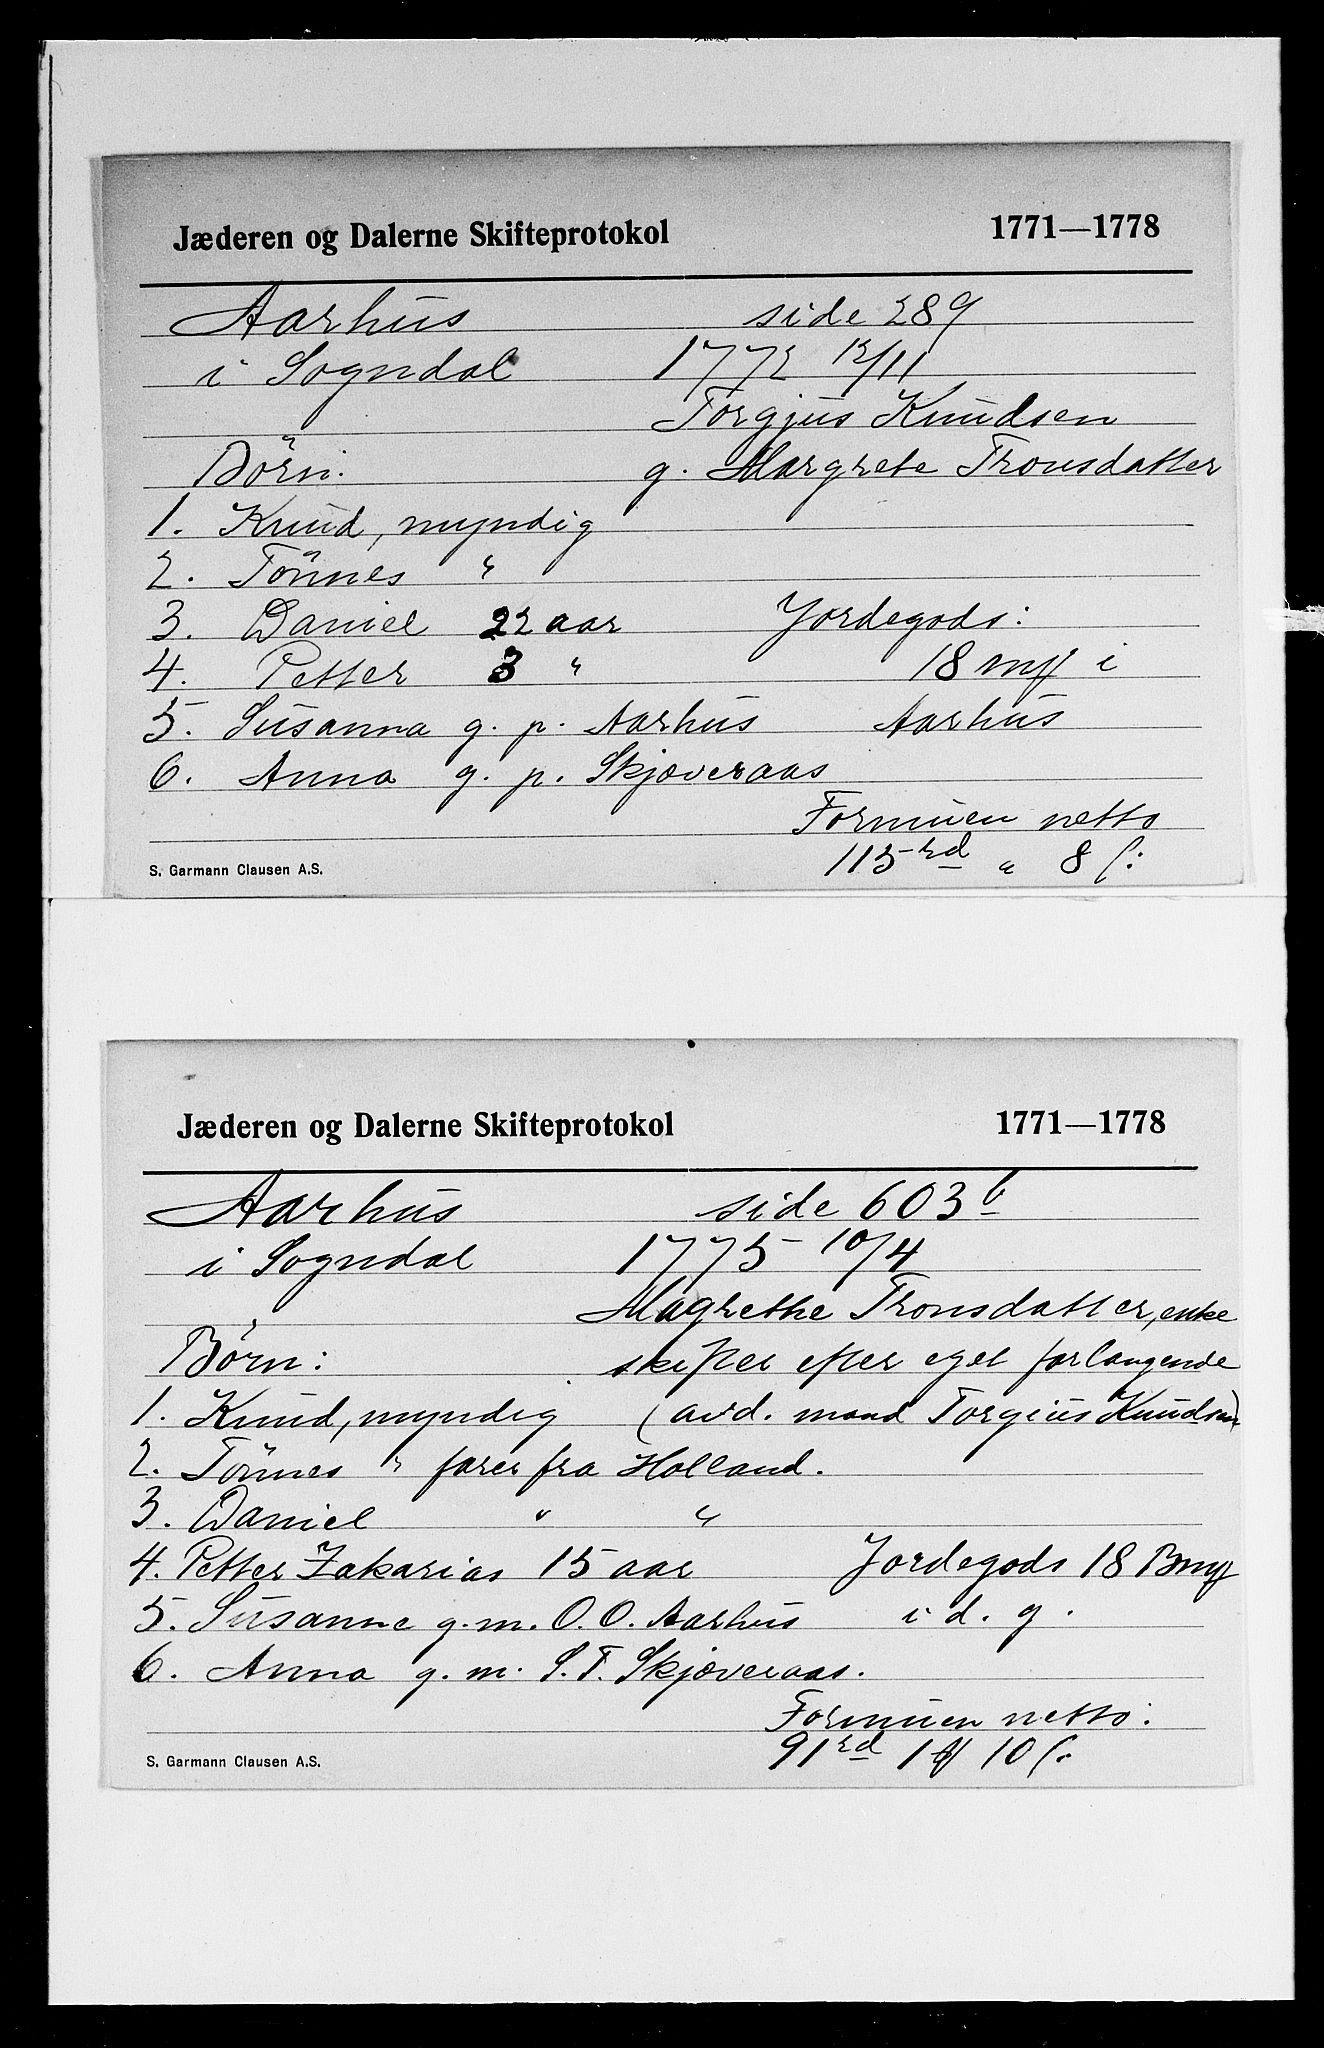 Jæderen og Dalerne Skifteprotokol 1771—1778
Aarhus side 289
i Sogndal 1772 12/11
Torgjus Knudsen
Børn: g. Margrete Tronsdatter
1. Knud, myndig
2. Tönnes "
3. Daniel 22 aar Jordegods:
4. Petter 3 " 18 mẞ i
5. Susanna g. p. Aarhus Aarhus
6. Anna g. p. Skjæveraas
Formuen netto
115 rd " 8 ſ:
S. Garmann Clausen A.S.
Jæderen og Dalerne Skifteprotokol 1771—1778
Aarhus side 603 b
i Sogndal 1775 10/4
Magrethe Tronsdatter, enke
Børn: skifter efter eget forlangende
1. Knud, myndig (avd. mand Torgius Knudsen)
2. Tönnes " farer fra Holland.
3. Daniel " "
4. Petter Zakarias 15 aar Jordegods 18 Bmẞ
5. Susanne g.m. O. O. Aarhus i d. g.
6. Anna g. m. S. T. Skjæveraas.
Formuen netto:
91 rd 1 10 ſ:
S. Garmann Clausen A.S.